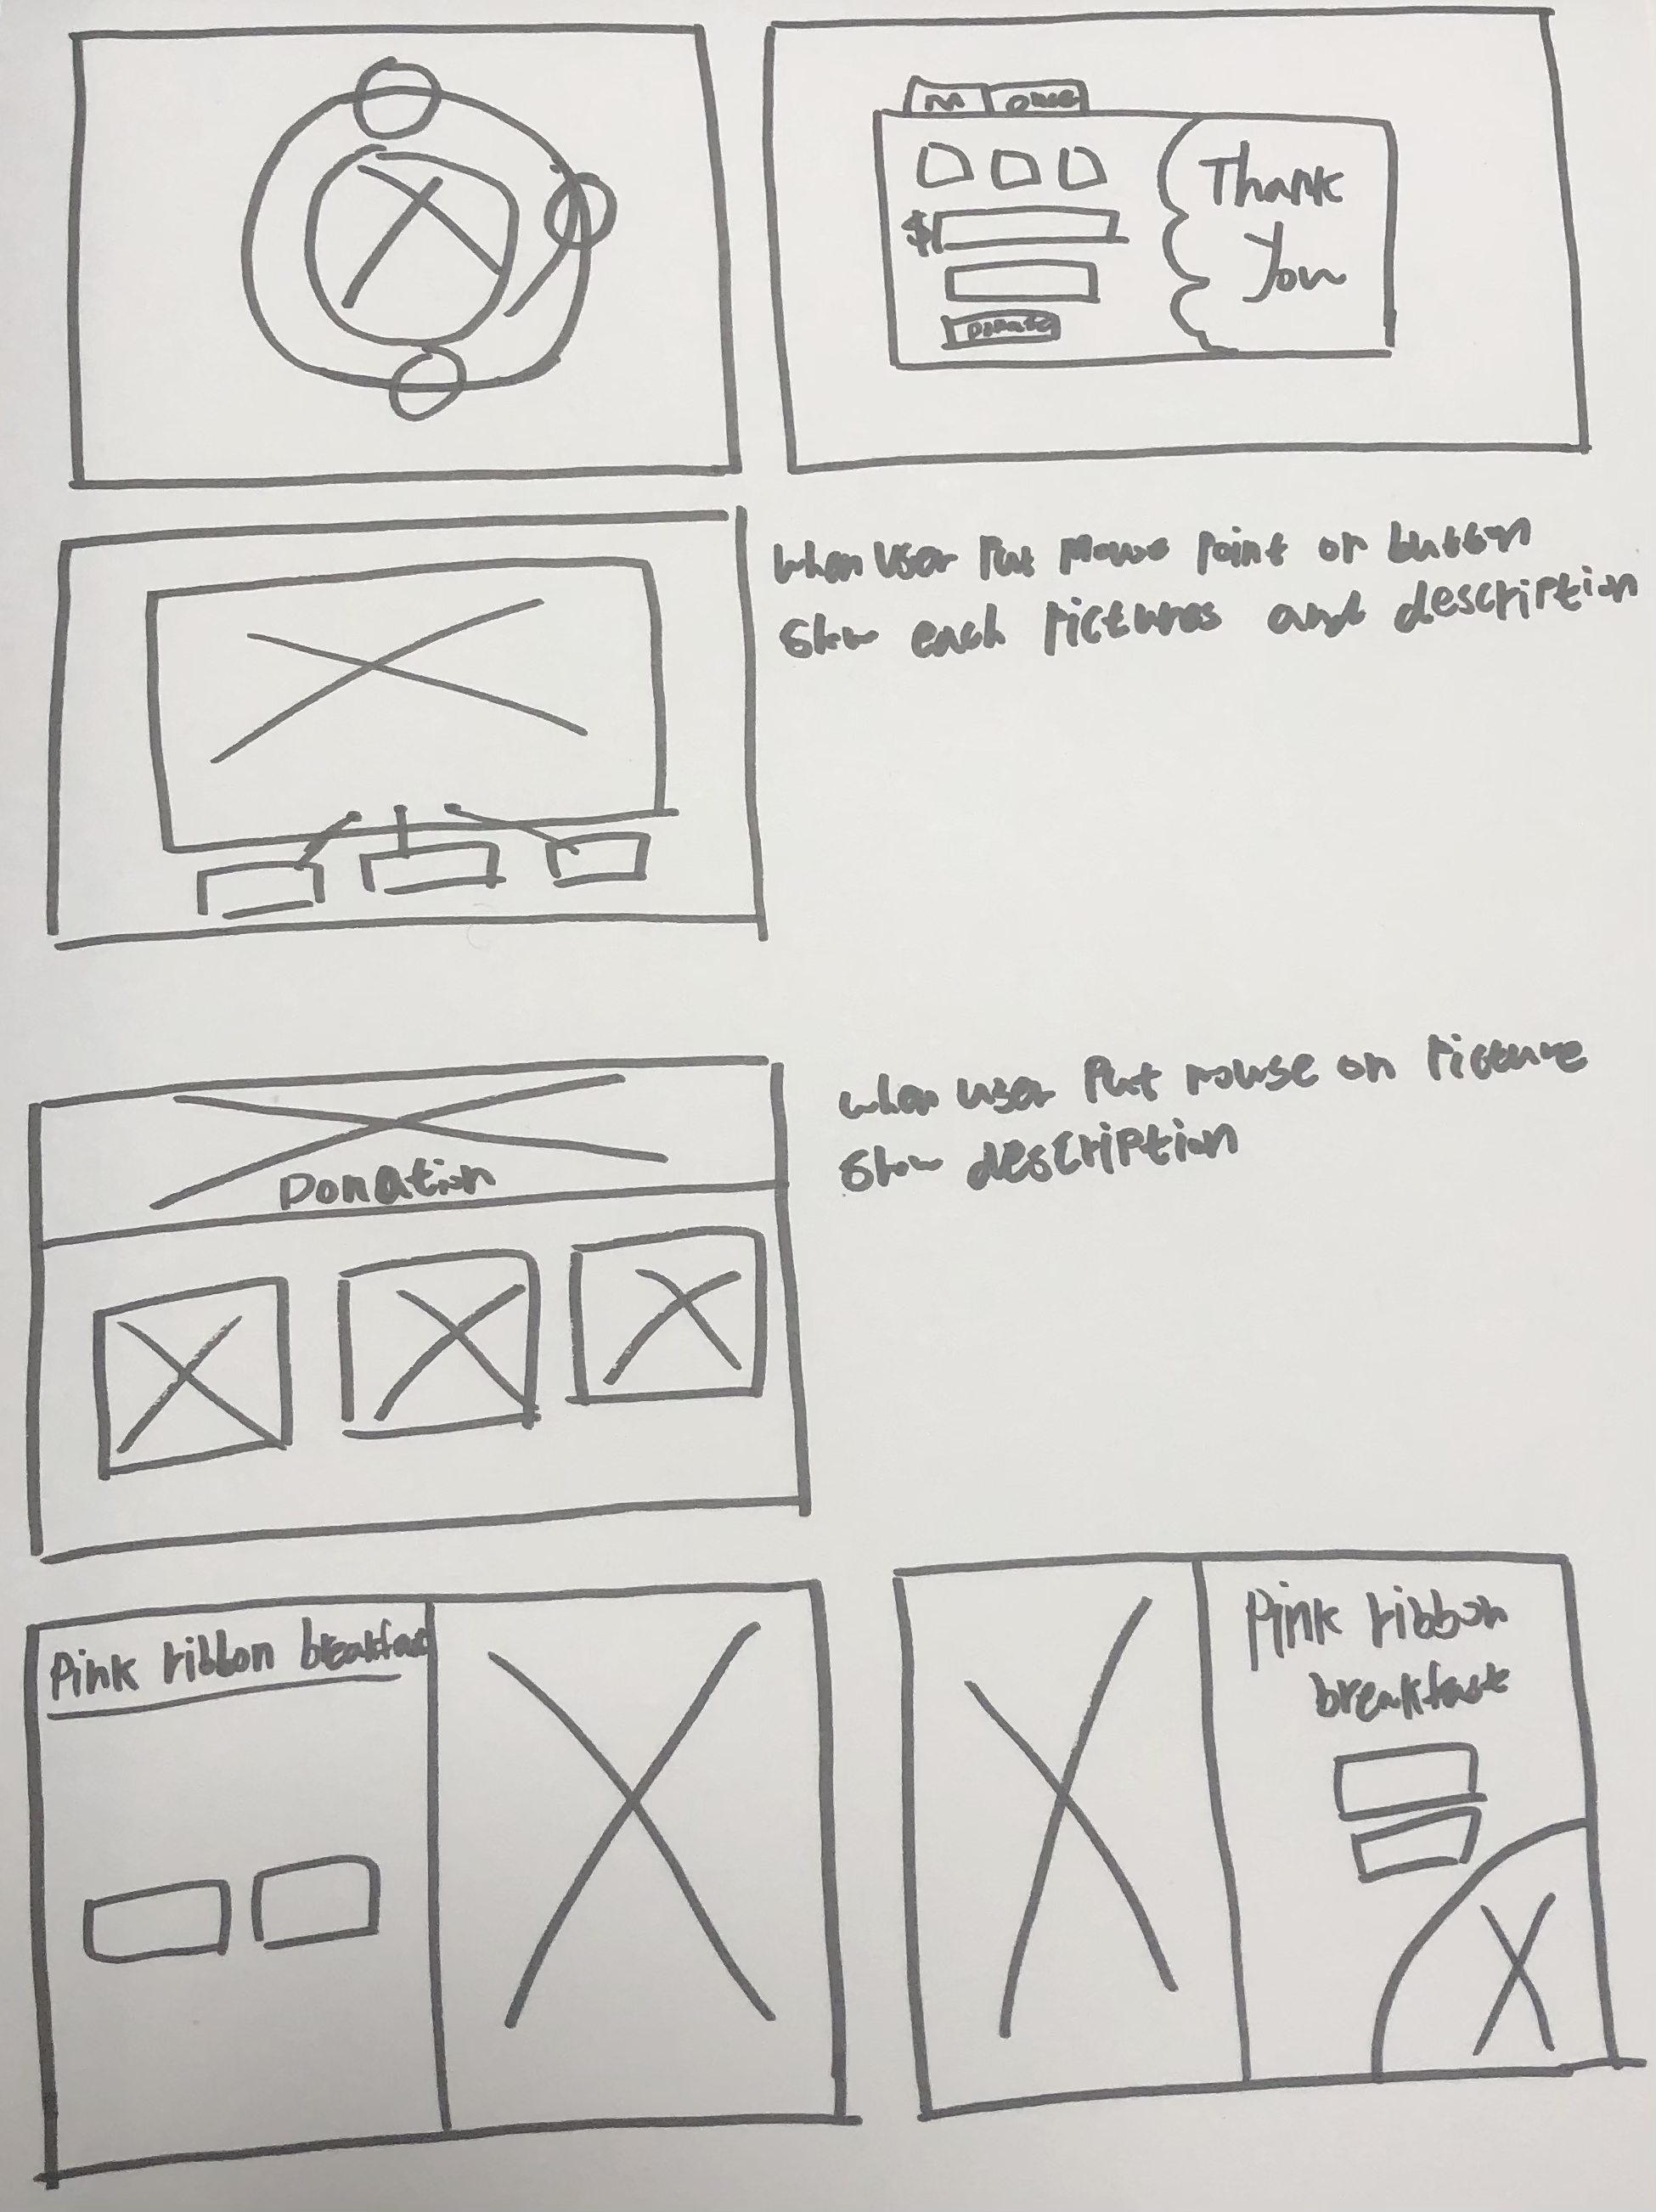 M once
Thank
You
$
Donate
when user Put mouse point on button
Show each Pictures and description
when user Put mouse on Picture
Show description
Donation
Pink ribbon breakfast
Pink ribbon
breakfast